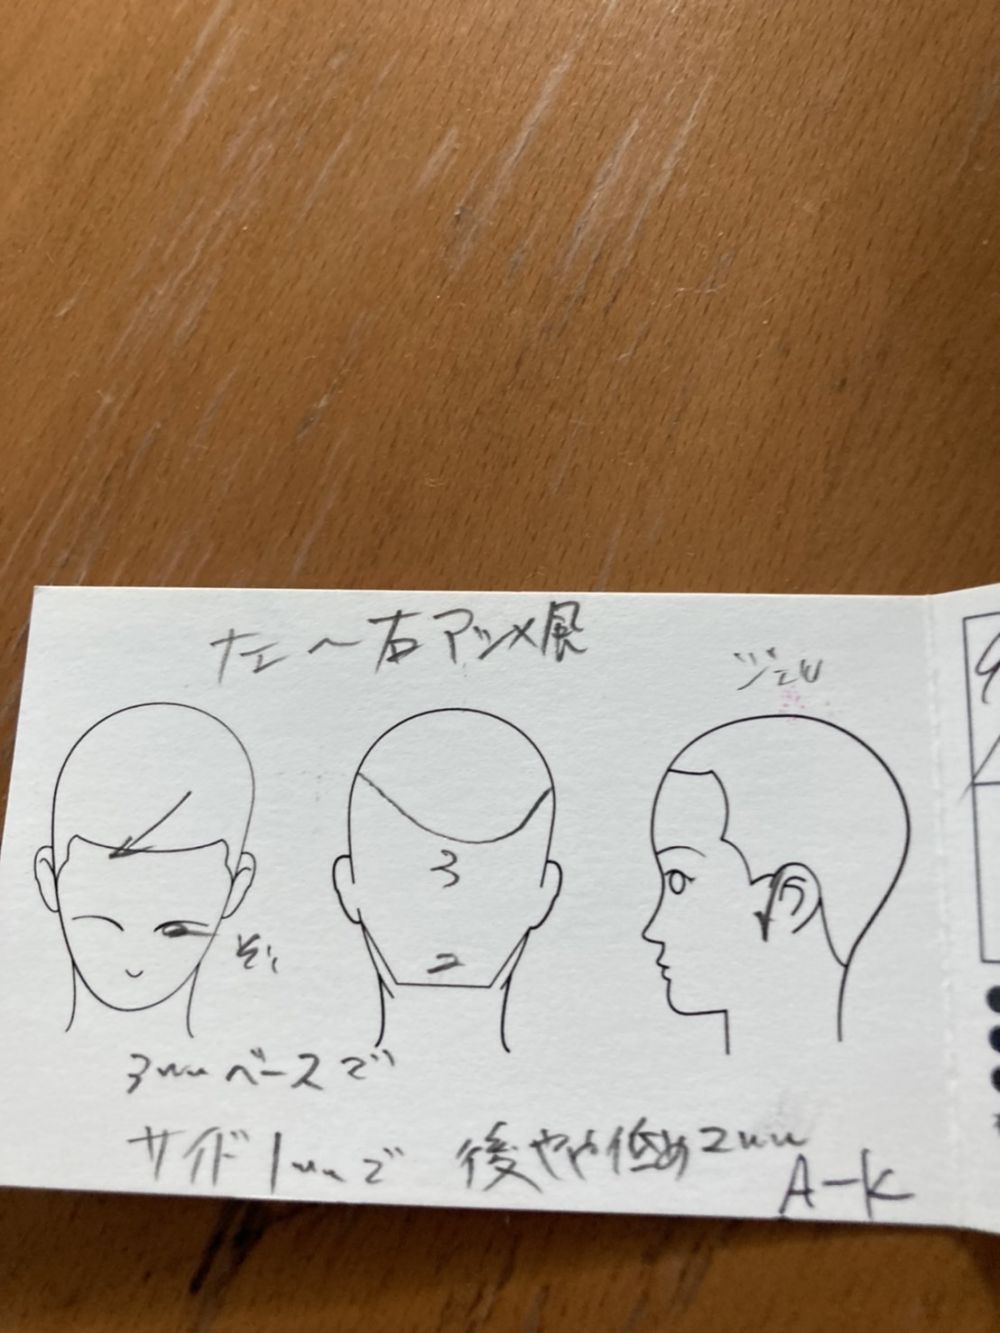 左〜右アシメ風
ジェル
3
2
3mmベースで
サイド1mmで 後やや低め2mm
A-K